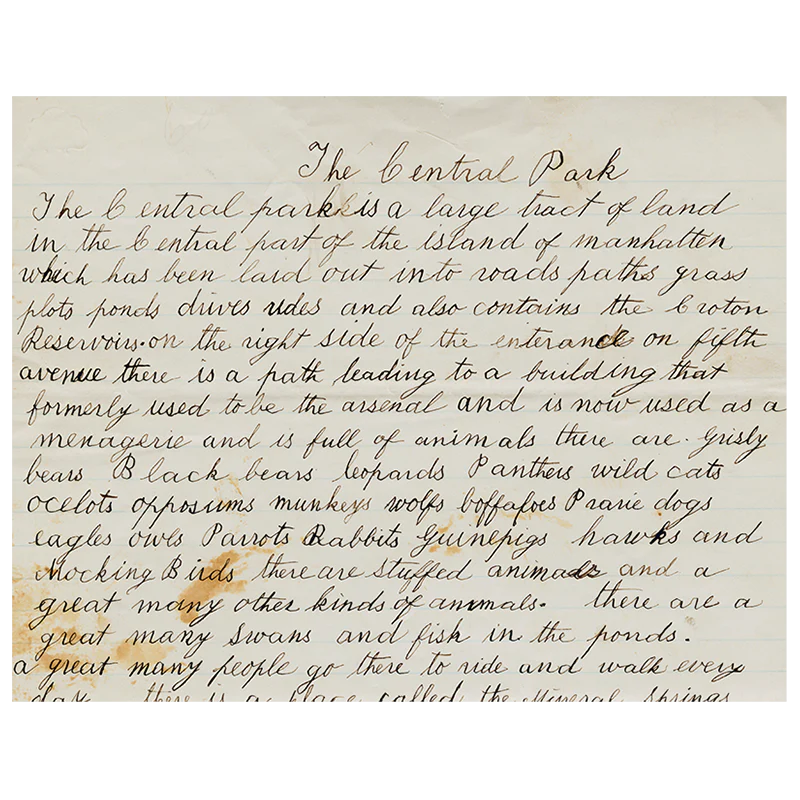 The Central Park
The Central park is a large tract of land
in the Central part of the island of manhatten
which has been laid out into roads paths grass
plots ponds drives rides and also contains the Croton
Reservoirs. on the right side of the enterance on fifth
avenue there is a path leading to a building that
formerly used to be the arsenal and is now used as a
menagerie and is full of animals there are. Grisly
bears Black bears leopards Panthers wild cats
ocelots opposiums munkeys wolfs boffafoes Prarie dogs
eagles owls Parrots Rabbits Guinepigs hawks and
Mocking Birds there are stuffed animals and a
great many other kinds of animals. there are a
great many swans and fish in the ponds.
a great many people go there to ride and walk every
day there is a place called the Mineral Springs